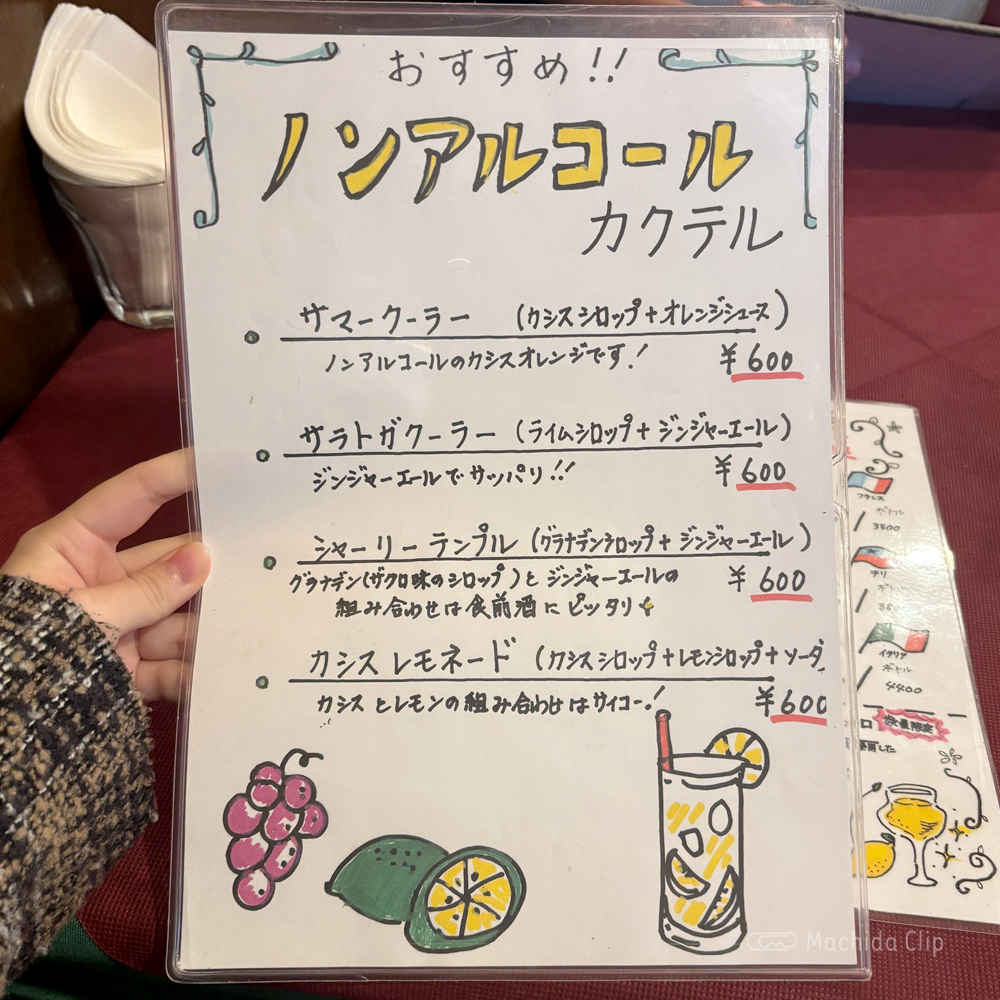 おすすめ!!
ノンアルコール
カクテル
サマークーラー (カシスシロップ+オレンジジュース)
ノンアルコールのカシスオレンジです! ¥600
サラトガクーラー (ライムシロップ+ジンジャーエール)
ジンジャーエールでサッパリ!! ¥600
シャーリーテンプル (グラナデンシロップ+ジンジャーエール)
グラナデン(ザクロ味のシロップ)とジンジャーエールの ¥600
組み合わせは食前酒にピッタリ
カシスレモネード (カシスシロップ+レモンシロップ+ソーダ
カシスとレモンの組み合わせはサイコー! ¥600
フランス
ボトル
3500
チリ
イタリア
ボトル
4400
数量限定
Machida Clip